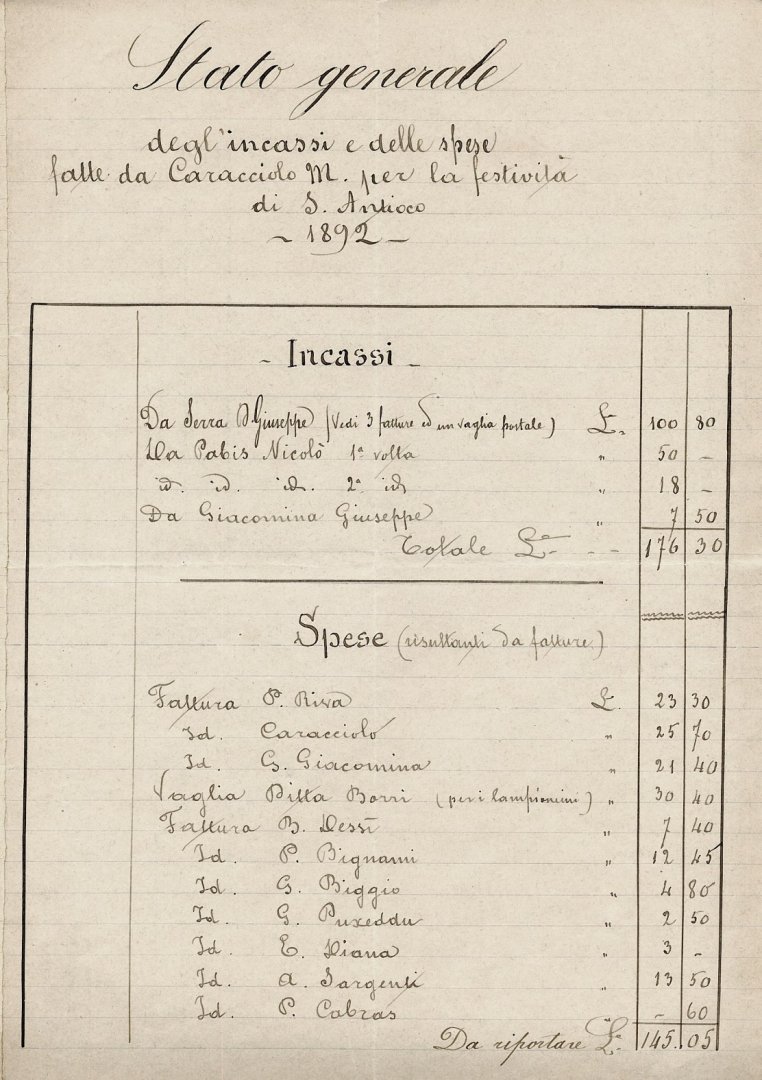 Stato generale
degl'incassi e delle spese
fatte da Caracciolo M. per la festività
di S. Antioco
- 1892 -
- Incassi -
Da Serra D. Giuseppe (Vedi 3 fatture ed un vaglia postale) £. 100 80
Da Pabis Nicolò 1ª volta " 50 -
id. id. id. 2ª id. " 18 -
Da Giacomina Giuseppe " 7 50
Totale £e - - 176 30
Spese (risultanti da fatture)
Fattura P. Riva £. 23 30
Id. Caracciolo " 25 70
Id. G. Giacomina " 21 40
Vaglia Ditta Borri (per i lampioncini) " 30 40
Fattura B. Dessì " 7 40
Id. P. Bignami " 12 45
Id. G. Biggio " 4 80
Id. G. Puxeddu " 2 50
Id. E. Diana " 3 -
Id. A. Sargenti " 13 50
Id. P. Cabras " - 60
Da riportare £e 145.05